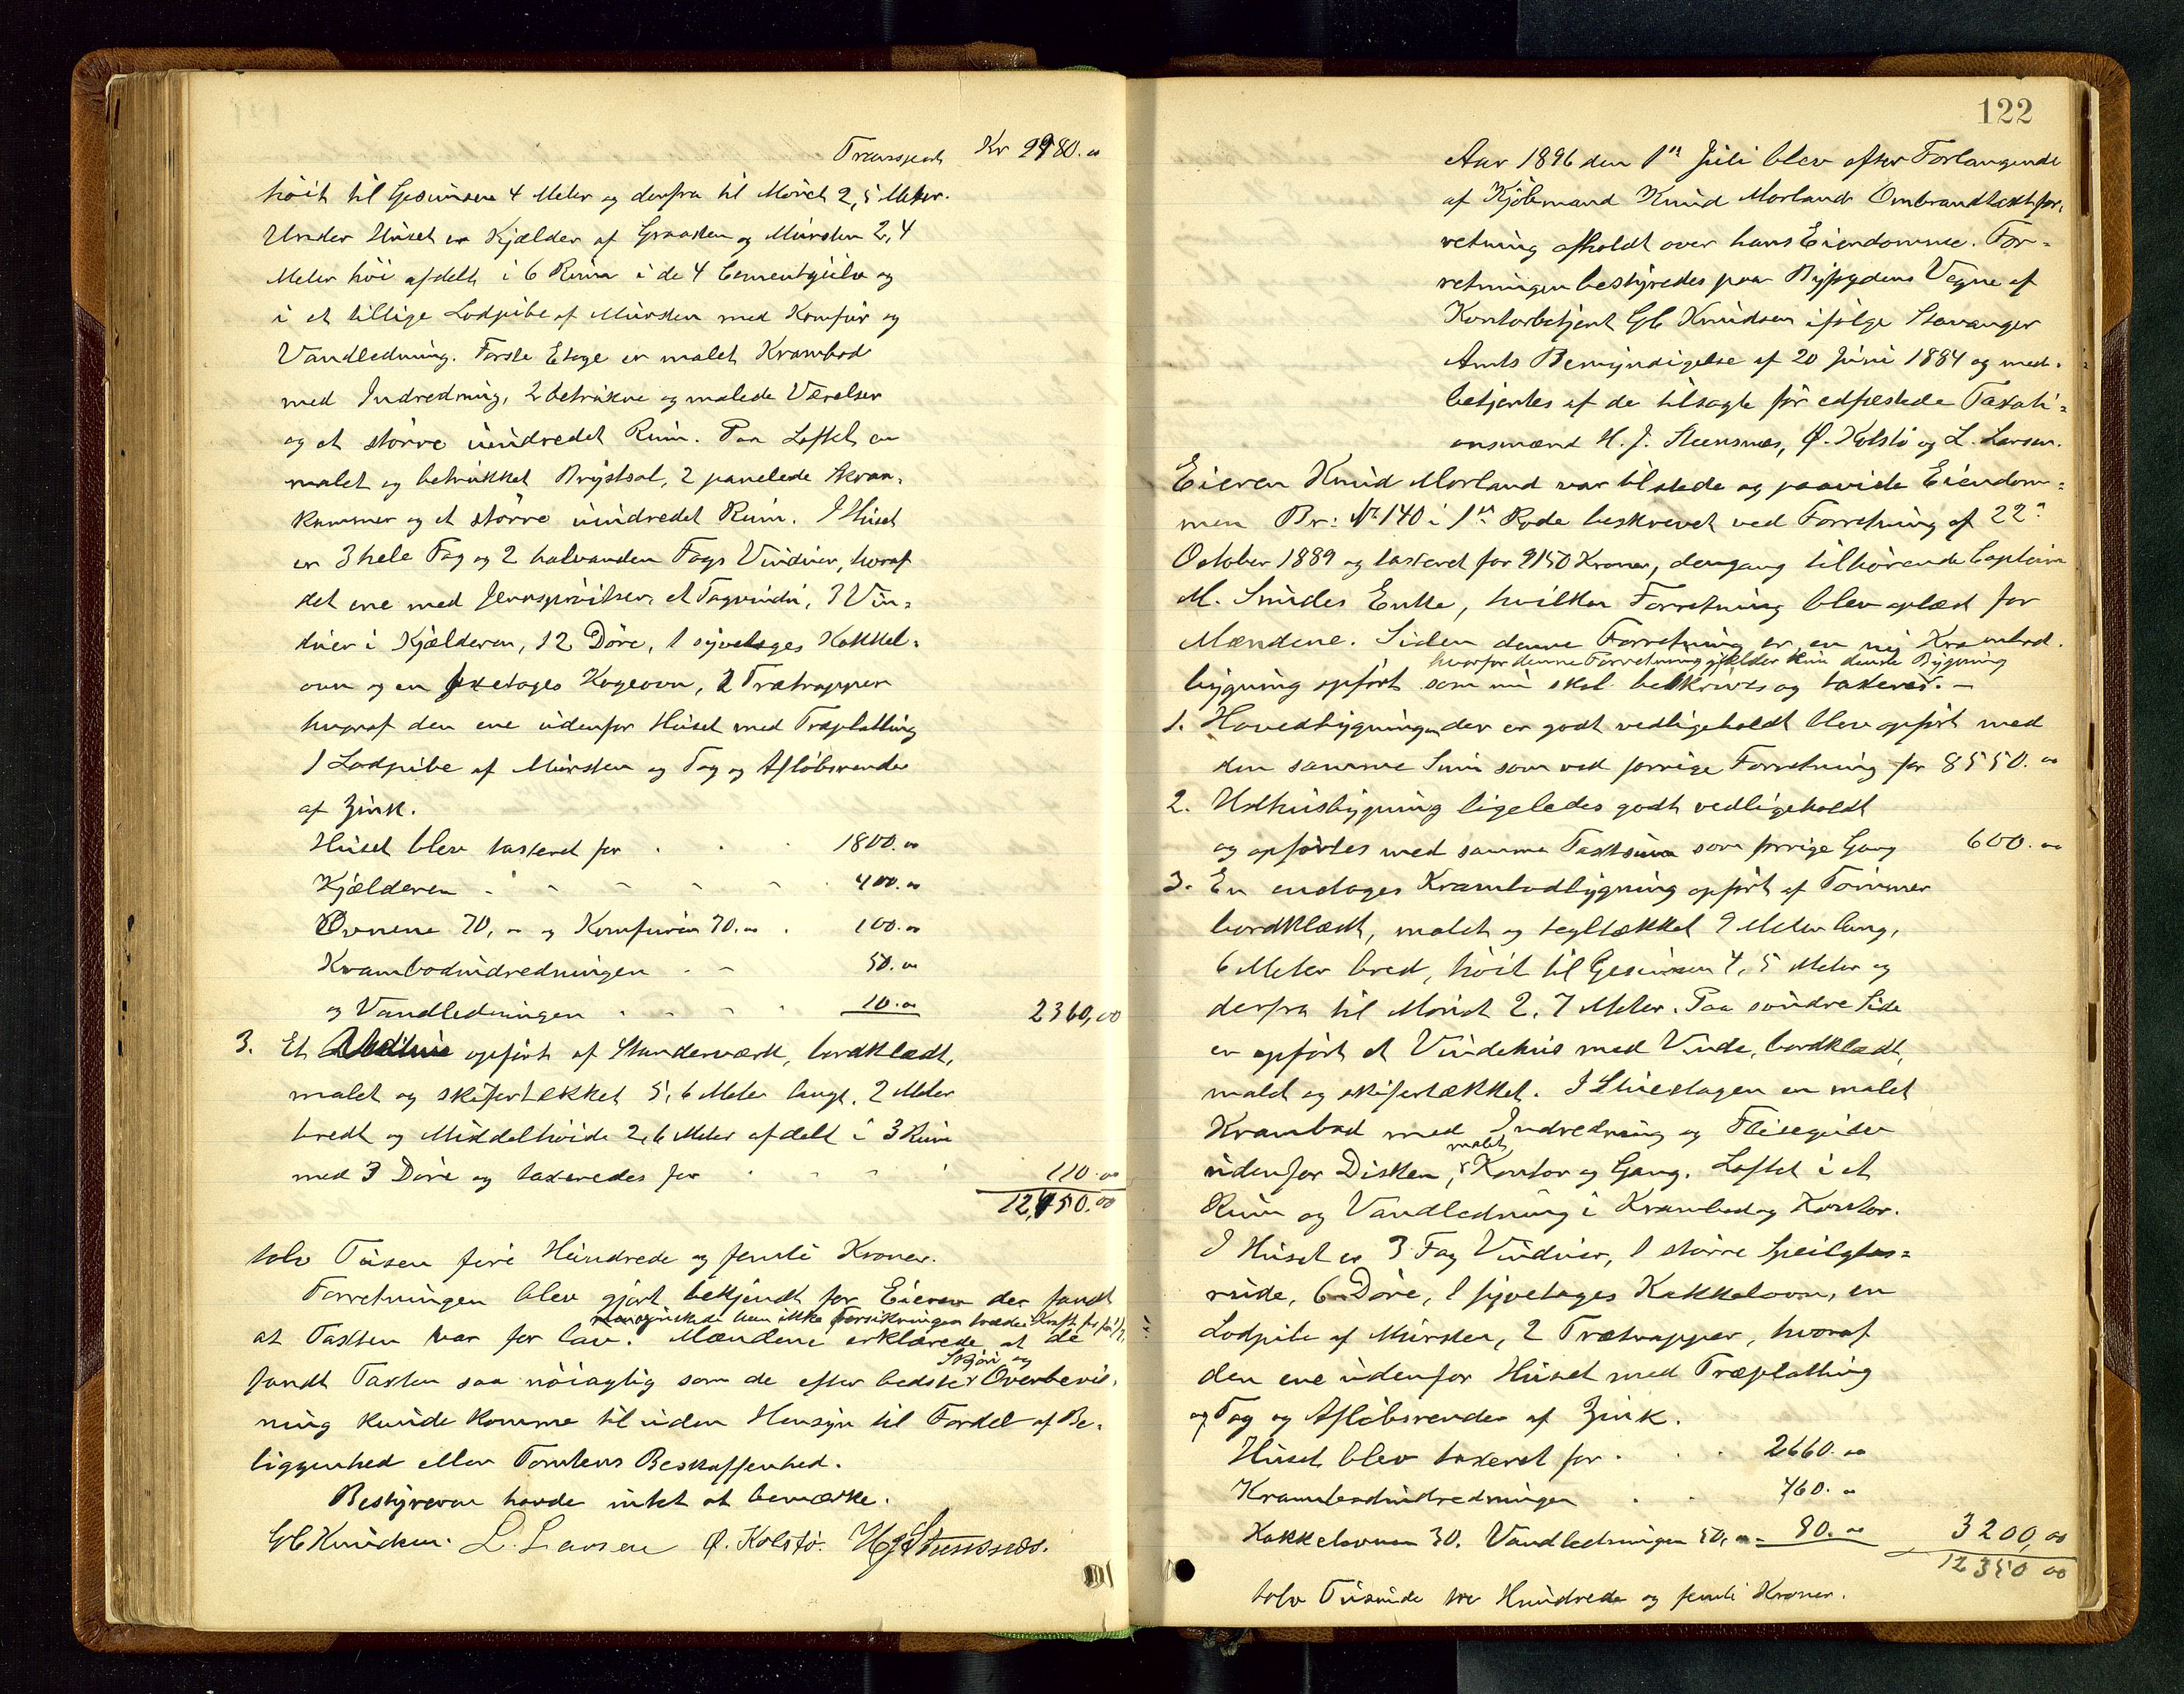 Transport Kr 9980.00
höit til Gesimsen 4 Meter og derfra til Mönet 2,5 Meter.
Under Huset er Kjælder af Graasten og Mursten 2,4
Meter höi afdelt i 6 Rum i de 4 Cementgulv og
i et tillige Lodpibe af Mursten med Komfur og
Vandledning. Første Etage er malet Krambod
med Indredning, 2 betrukne og malede Værelser
og et större uindredet Rum. Paa Loftet en
malet og betrukket Brystsal, 2 panelede Skraa-
kammer og et större uindredet Rum. I Huset
er 3 hele Fag og 2 halvanden Fags Vinduer, hvoraf
det ene med Jernsprinkler, et Tagvindu, 3 Vin-
duer i Kjælderen, 12 Döre, 1 syvetages Kakkel-
ovn og en etages Kogeovn, 2 Trætrapper
hvoraf den ene udenfor Huset med Træplatting
1 Lodpibe af Mursten og Tag og Aflöbsrender
af Zink.
Huset blev taxeret for . . . 1800.00
Kjælderen - - - - - 400.00
Ovnene 70,00 og Komfuren 30.00 . 100.00
Krambodindredningen . - 50.00
og Vandledningen . - - . 10.00 2360,00
3. Et Udhus opfört af Standerværk, bordklædt,
malet og skifertækket 5,6 Meter langt, 2 Meter
bredt og Middelhöide 2,6 Meter afdelt i 3 Rum
med 3 Döre og taxeredes for . - - . 110.00
12,450.00
tolv Tusen fire Hundrede og femti Kroner.
Forretningen blev gjort bekjendt for Eieren der fandt
at Taxten var for lav. Mændene erklærede at de
fandt Taxten saa nöiagtig som de efter bedste Skjön og Overbevis-
ning kunde komme til uden Hensyn til Fordel af Be-
liggenhed eller Tomtens Beskaffenhed.
Bestyreren havde intet at bemærke.
Gb Knudsen. L. Larsen Ø. Kolstö. H J Steensnæs.
122
Aar 1896 den 1ste Juli blev efter Forlangende
af Kjöbmand Knud Morland Ombrandtaxtfor-
retning afholdt over hans Eiendomme. For-
retningen bestyredes paa Byfogdens Vegne af
Kontorbetjent Gb Knudsen ifölge Stavanger
Amts Bemyndigelse af 20 Juni 1884 og med-
betjentes af de tilsagte för edfæstede Taxati-
onsmænd H. J. Steensnæs, Ø. Kolstö og L. Larsen.
Eieren Knud Morland var tilstede og paaviste Eiendom-
men Br: No 140 i 1ste Rode beskrevet ved Forretning af 22de
October 1889 og taxeret for 9150 Kroner, dengang tilhörende Captein
M. Smiths Enke, hvilken Forretning blev oplæst for
Mændene. Siden denne Forretning er en ny Krambod-
hvorfor denne Forretning gjælder kun denne Bygning
bygning opfört som nu skal beskrives og taxeres. -
1. Hovedbygningen der er godt vedligeholdt blev opfört med
den samme Sum som ved forrige Forretning for 8550.00
2. Udhusbygning ligeledes godt vedligeholdt
og opförtes med samme Taxtsum som forrige Gang 600.00
3. En enetages Krambodbygning opfört af Tömmer
bordklædt, malet og tegltækket 9 Meter lang,
6 Meter bred, höit til Gesimsen 4,5 Meter og
derfra til Mönet 2,7 Meter. Paa söndre Side
er opfört et Vindehus med Vinde, bordklædt,
malet og skifertækket. I Stueetagen en malet
Krambod med Indredning og Flisegulv
udenfor Disken, malet Kontor og Gang. Loftet i et
Rum og Vandledning i Krambod og Kontor.
I Huset er 3 Fag Vinduer, 1 större Speilglas-
rude, 6 Döre, 1 syvetages Kakkelovn, en
Lodpibe af Mursten, 2 Trætrapper, hvoraf
den ene udenfor Huset med Træplatting
og Tag og Aflöbsrender af Zink.
Huset blev taxeret for . . . 2660.00
Krambodindredningen . . 460.00
Kakkelovnen 30. Vandledningen 50,00 - 80.00 3200,00
12350 00
tolv Tusinde tre Hundrede og femti Kroner.